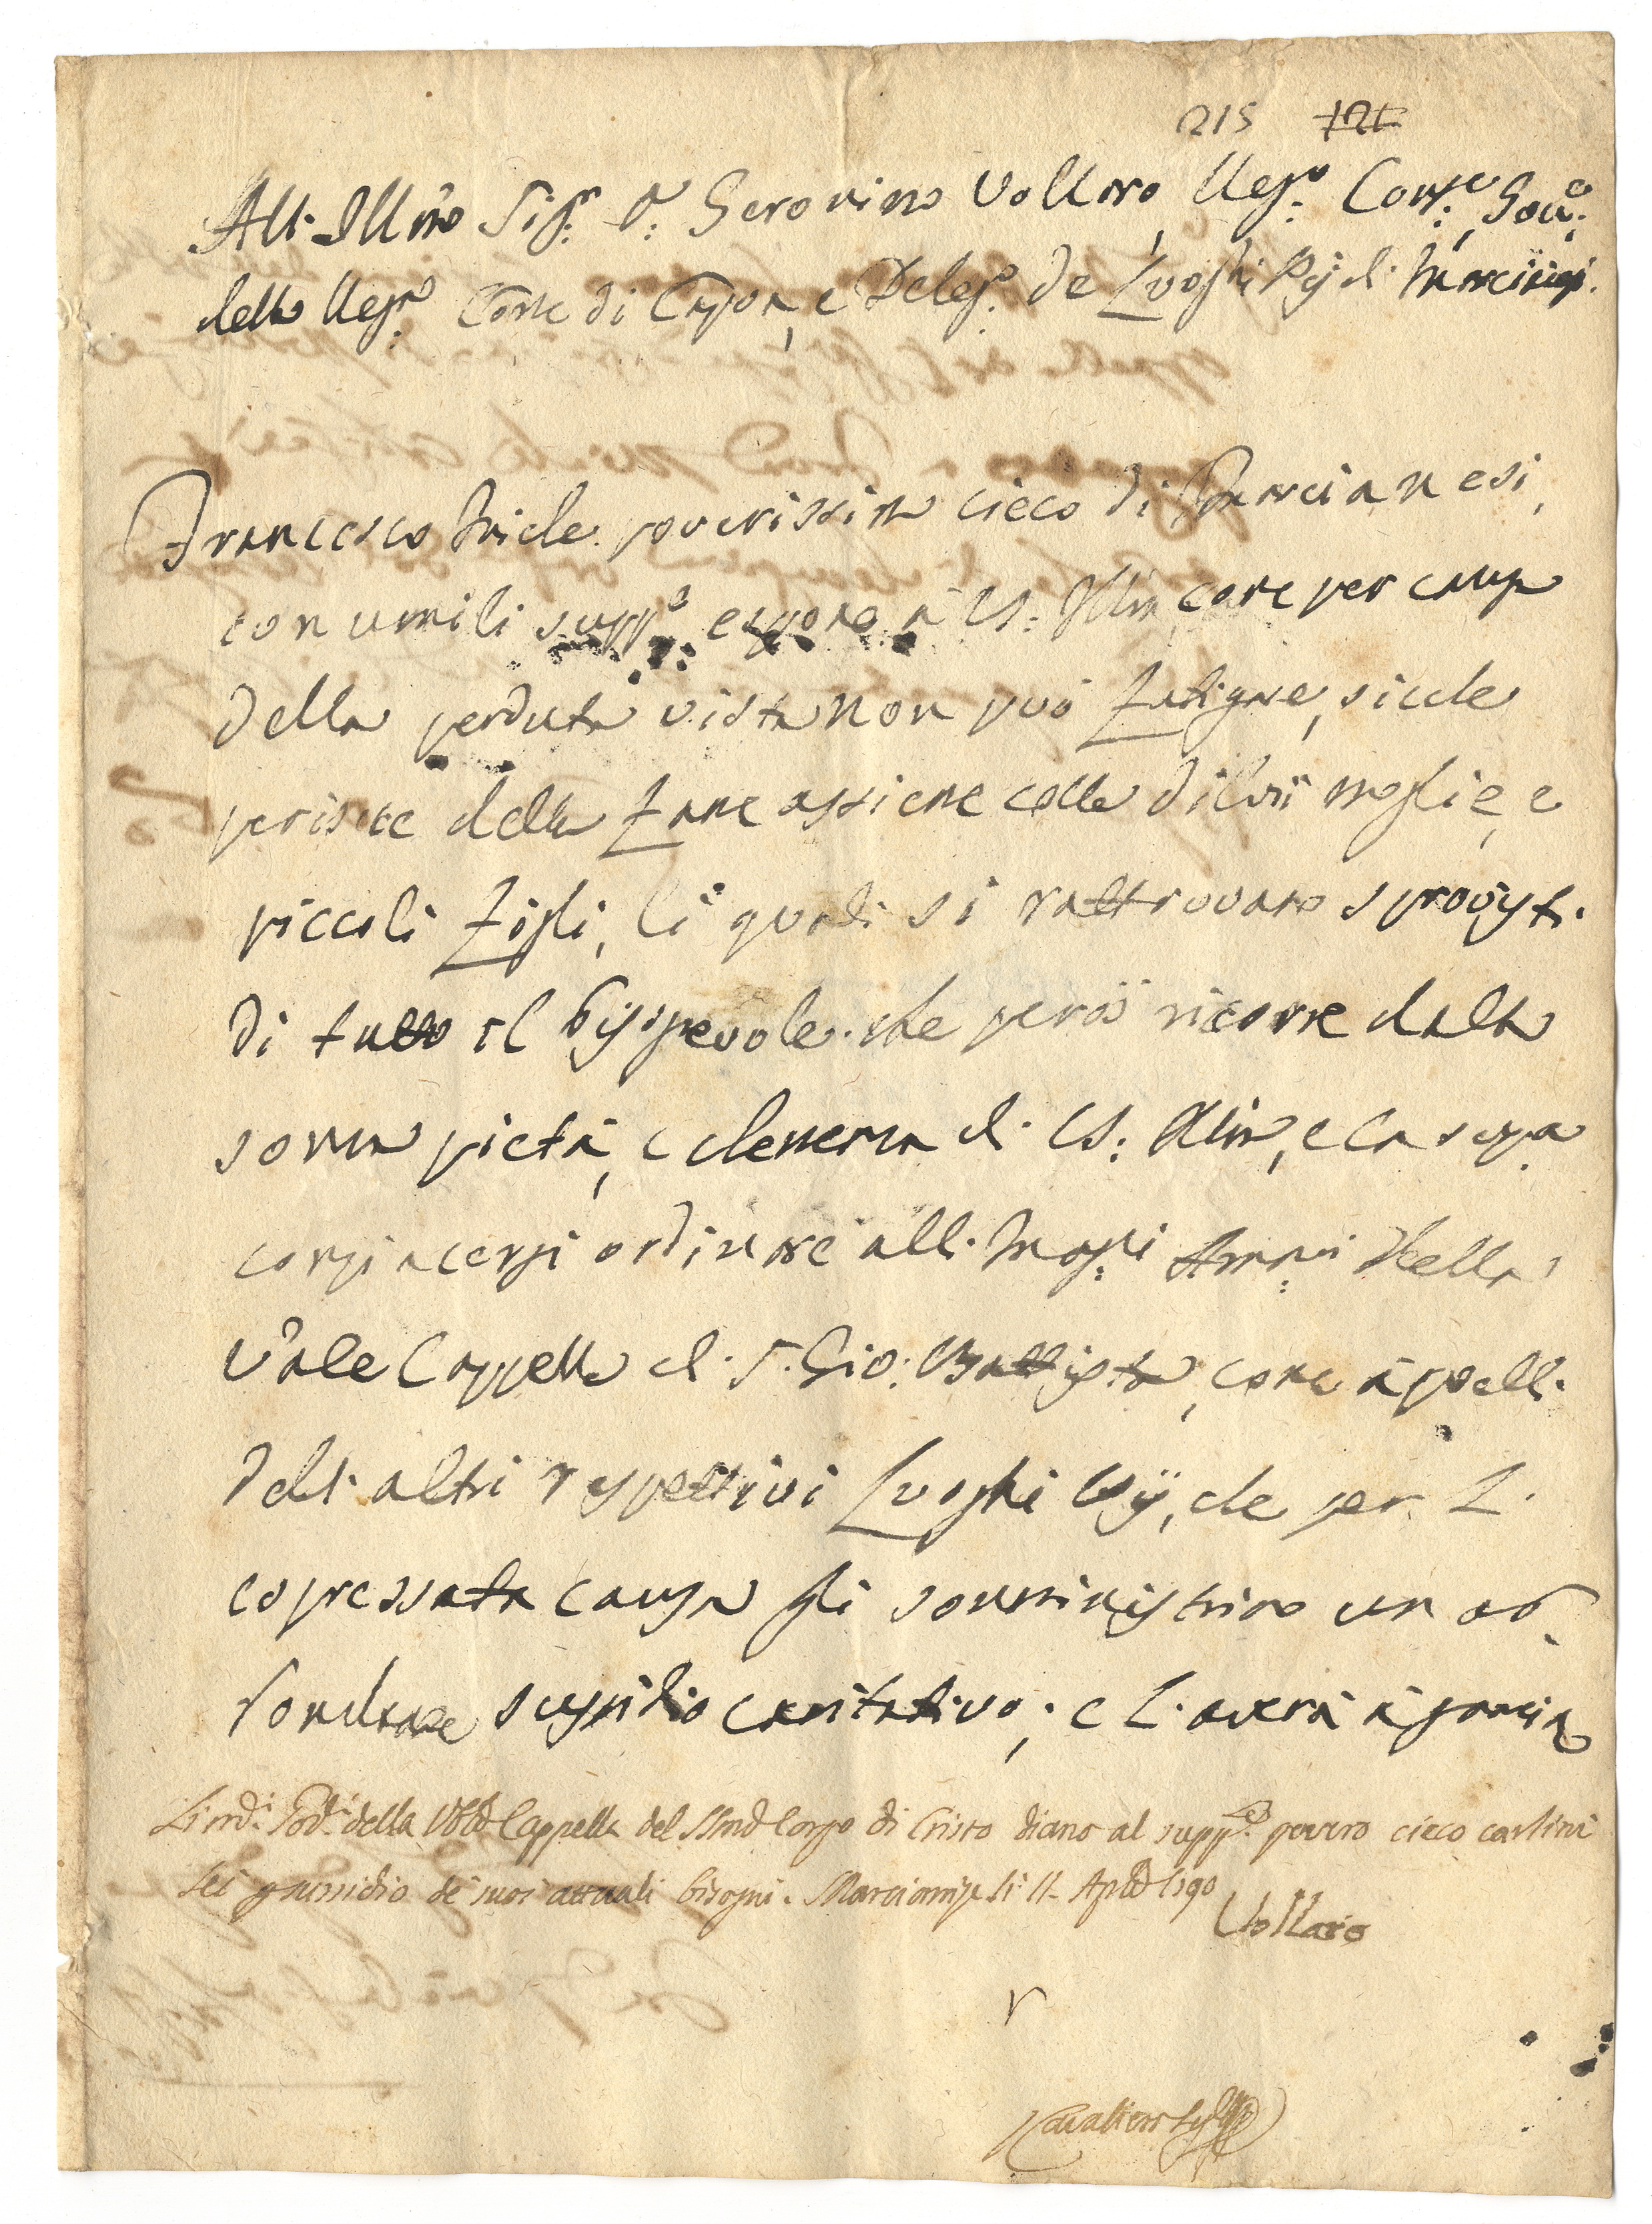 215
All' Illmo Sig.r D. Geronimo Vollaro, Reg.o Cons.re, Gov.e
della Reg.a Corte di Capua, e Deleg.o de Luoghi Pij di Marcianisi.
Francesco poverissimo cieco di Marcianesi,
con umili supp.e espone à VS: Illma, come per causa
della perduta vista non può fatigare, sicche
perisce della fame assieme colla di lui moglie, e
piccoli figli, li quali si rattrovano sprovisti
di tutto il bisognevole. che però ricorre dalla
somma pietà, e clemenza di VS: Illma, e la supp.a
compiacersi ordinare alli Mag.ci della
V.ale Cappella di S. Gio: Battista, come à quelli
delli altri respettivi Luoghi Pij, che per l'
espressata causa gli somministrino un ab-
bondante sussidio caritativo; e l'averà à grazia
Li della V.ble Cappella del SSmo Corpo di Cristo diano al supp.te povero cieco carlini
sei sussidio de' suoi attuali bisogni. Marcianise li 11 Aple 1790
Vollaro
Cavaliere